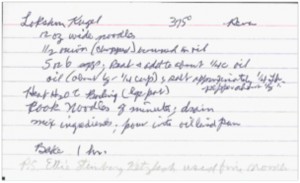 Lokshen Kugel 375° Reva
12 oz wide noodles
1/2 onion (chopped) browned in oil
5 or 6 eggs; beat & add to about 1/4 c oil
oil (about 1/4 cup); salt approximately 1/4 t
Heat H2O to Boiling (lg pot)
Cook Noodles minutes; drain
mix ingredients; pour into oiled pan
Bake 1 hr.
P.S. Ellis used